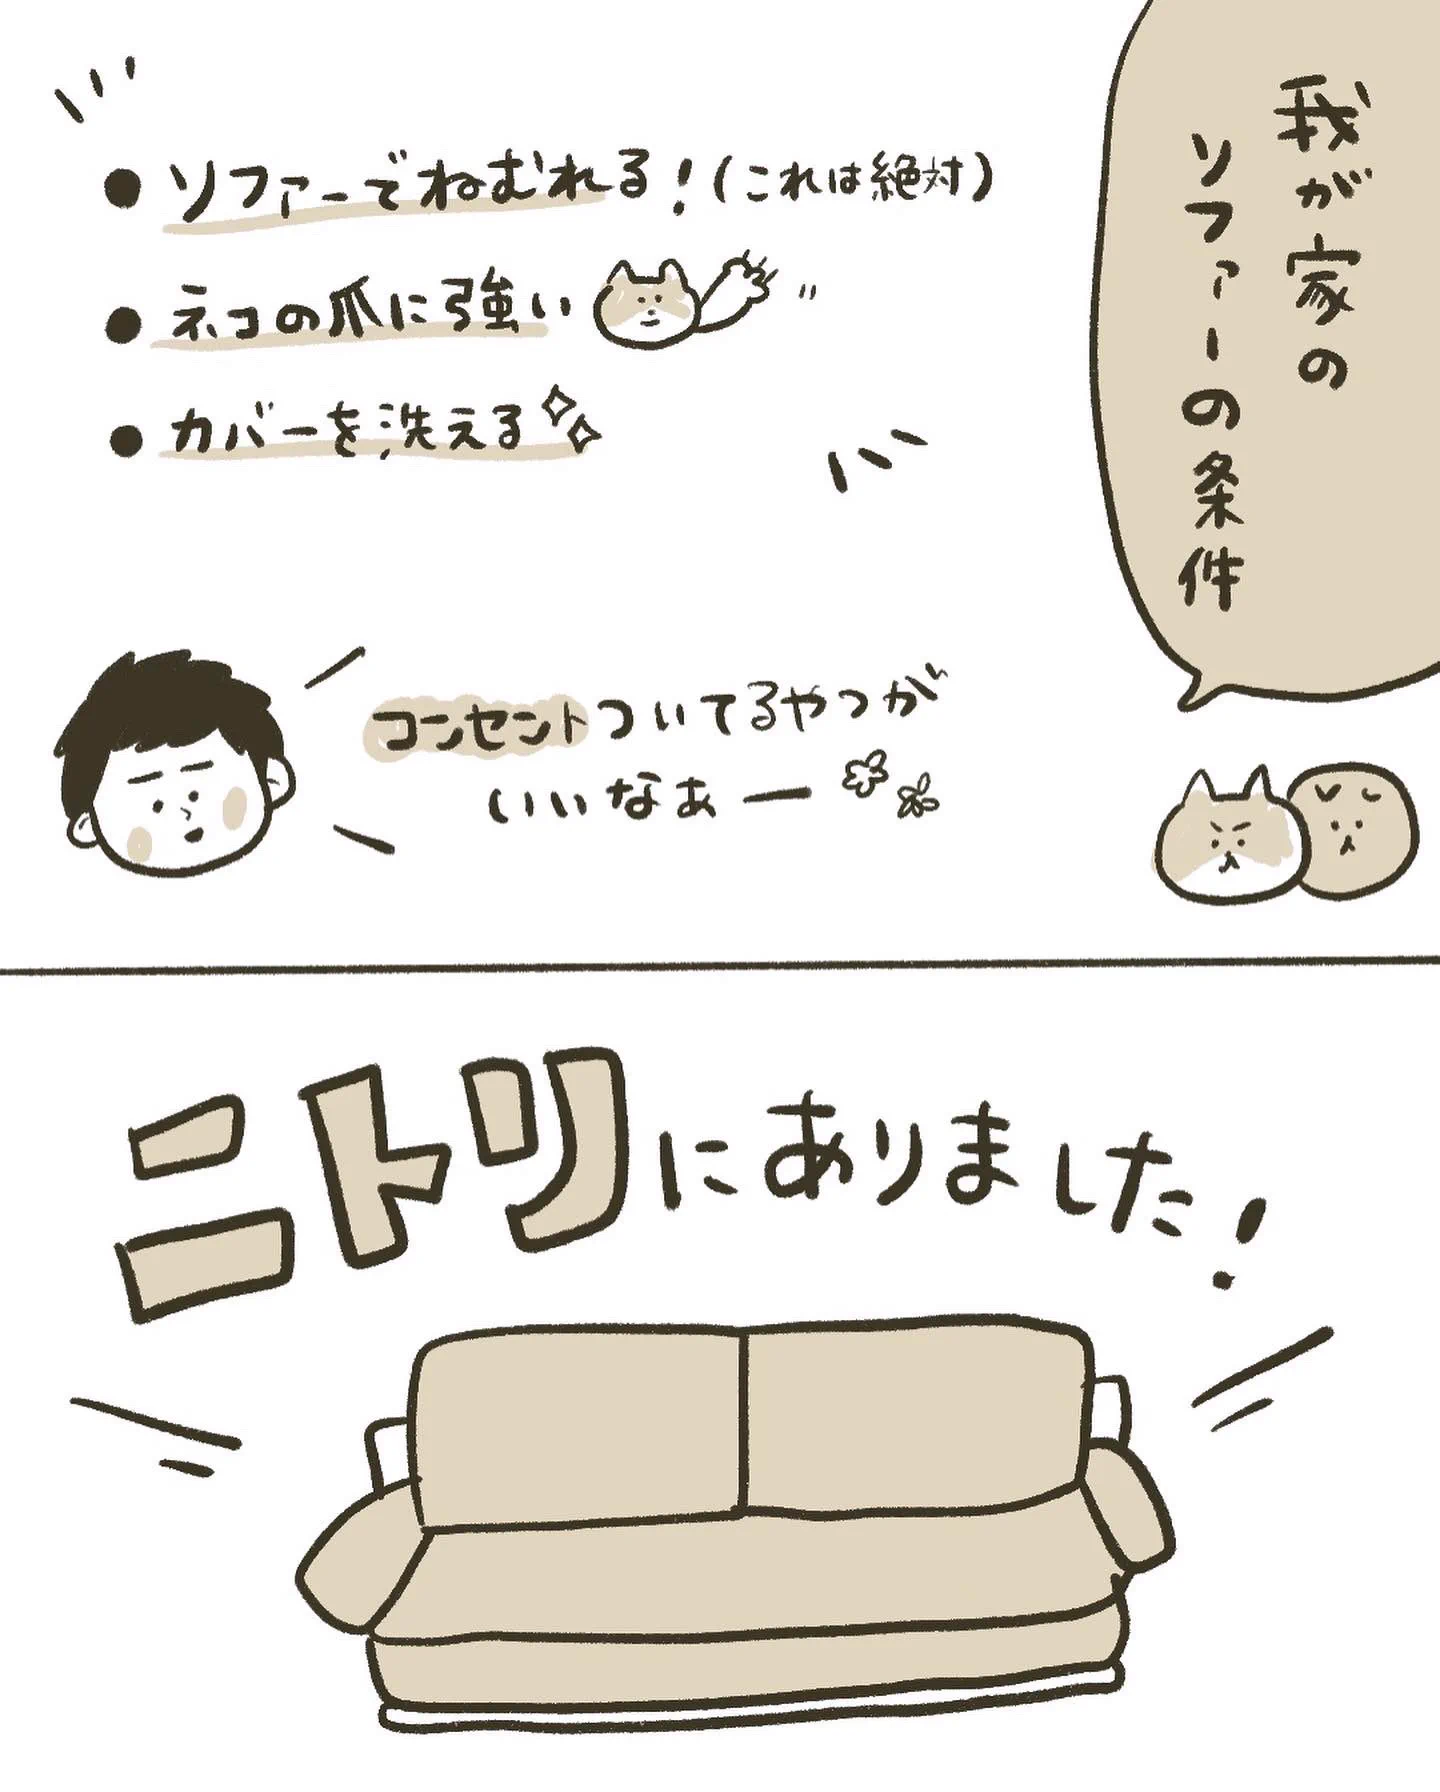 我が家の
ソファーの条件
● ソファーでねむれる!(これは絶対)
● ネコの爪に強い
● カバーを洗える
コンセントついてるやつが
いいなぁー
ニトリにありました!